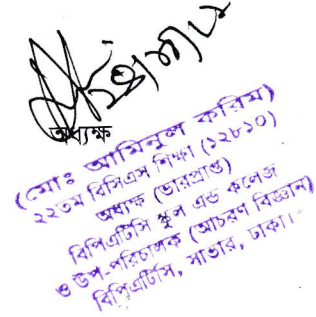 অধ্যক্ষ
(মোঃ আমিনুল করিম)
২২তম বিসিএস শিক্ষা (১২৮১০)
অধ্যক্ষ (ভারপ্রাপ্ত)
বিপিএটিসি স্কুল এন্ড কলেজ
ও উপ-পরিচালক (আচরণ বিজ্ঞান)
বিপিএটিসি, সাভার, ঢাকা।